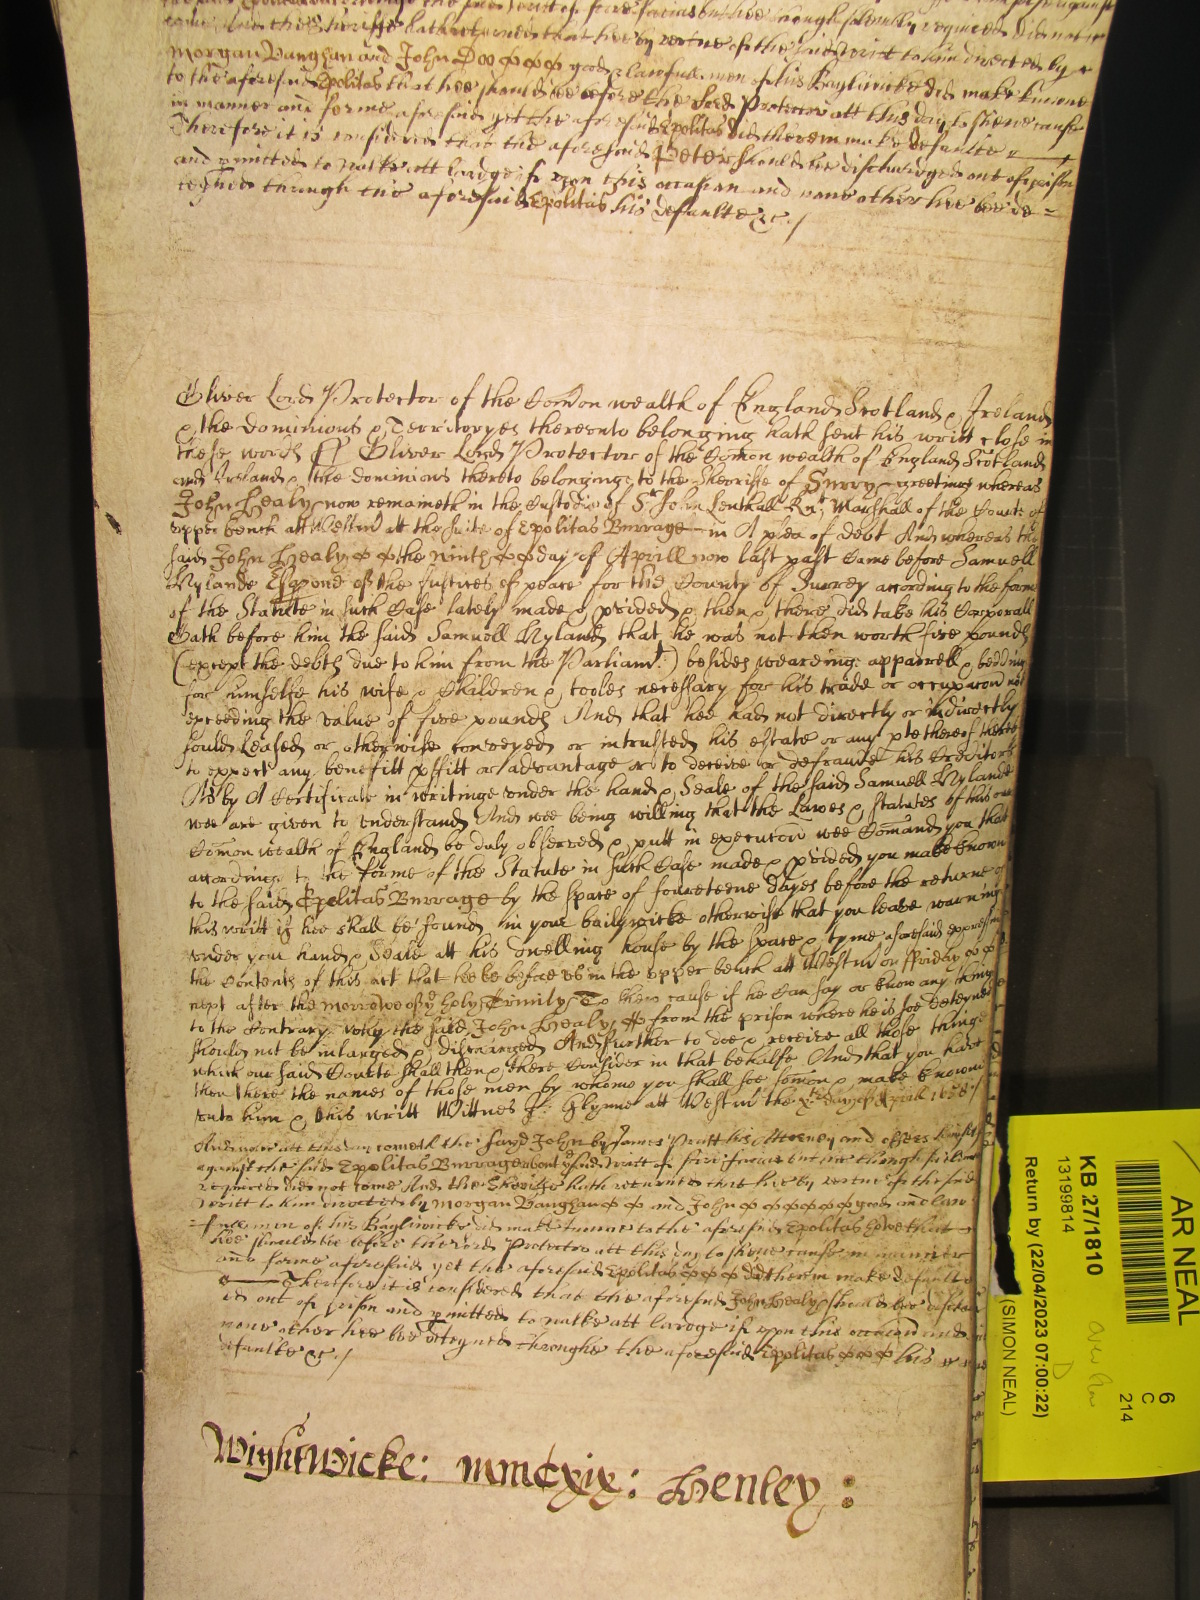 came And the Sheriffe hath returned that hee by vertue of the said writt to him directed by
Morgan Vaughan and John Doo good & lawfull men of his Bayliwicke did make knowne
to the aforesaid Epolitas that hee should bee before the Lord Protector att this day to shewe cause
in manner and forme aforesaid yet the aforesaid Epolitas did therein make defaulte
Therefore it is considered that the aforesaid Peter should bee discharged out of prison
and pmitted to walke att lardge if vpon this occasion and none other hee bee de=
teyned through the aforesaid Epolitas his defaulte &c./
Oliver Lord Protector of the Comon wealth of England Scotland & Ireland
& the dominions & Territoryes thereunto belonging hath sent his writt close in
these words ss Oliver Lord Protector of the Comon wealth of England Scotland
and Ireland & the dominions thereto belonging to the Sherriffe of Surry greeting whereas
John Healy now remaineth in the Custodie of Sr John Lenthall Knt Marshall of the Courte of
vpper bench att Westmr att the suite of Epolitas Burrage in A plea of debt And whereas the
said John Healy the ninth day of Aprill now last past Came before Samuell
Hylande Esq one of the Justices of peace for the County of Surrey according to the forme
of the Statute in such Case lately made & pvided & then & there did take his Corporall
Oath before him the said Samuell Hyland that he was not then worth five pounds
(except the debts due to him from the Parliamt:) besides wearding apparrell & bedding
for himselfe his wife & Children & tooles necessary for his trade or occupacon not
exceeding the value of five pounds And that hee had not directly or indirectly
sould Leased or otherwise conveyed or intrusted his estate or any pte thereof thereby
to expect any benefitt pffitt or advantage or to deceive or defraude his Creditors
As by A Certificate in writinge vnder the hand & Seale of the said Samuell Hylande
wee are given to vnderstand And wee being willing that the Lawes & Statutes of this our
Comon wealth of England be duly observed & putt in execucon wee Comand you that
according to the forme of the Statute in such Case made & pvided you make knowne
to the said Epolitas Burrage by the space of foureteene dayes before the returne of
this writt if hee shall be found in your bailywicke otherwise that you leave warning
vnder your hand & Seale att his dwelling house by the space & tyme aforesaid expressing
the Contents of this act that hee be before vs in the vpper bench att Westmr on Friday
next after the morrowe of ye holy Trinity To shew cause if he Can say or know any thing
to the Contrary why the said John Healy from the prison where he is soe deteyned
should not be inlarged & discharged And further to doe & receive all those things
which our said Courte shall then & there Consider in that behalfe And that you have
then there the names of those men by whome you shall soe somon & make knowne
vnto him & this writt Wittnes J: Glynne att Westmr the xth day of Aprill 1658/
And now att this day cometh the sayd John by James Pratt his Atturney and offers himselfe
against the said Epolitas Burrage vpon ye said writt of scire facias but hee though sollemly
required did not come And the Sheriffe hath returned that hee by vertue of the said
writt to him directed by Morgan Vaughan and John good and law=
full men of his Bayliwicke did make knowne to the aforesaid Epolitas that
hee should bee before the Lord Protector att this day to shewe cause in manner
and forme aforesaid yet the aforesaid Epolitas did therein make defaulte
Therefore it is considered that the aforesaid John Healy should bee dischar
ed out of prison and pmitted to walke att lardge if vpon this occasion and
none other hee bee deteyned throughe the aforesaid Epolitas his
defaulte &c./
WightWicke: mmcxix: Henley:
AR NEAL
6
C
214
KB 27/1810
13199814
Return by (22/04/2023 07:00:22)
(SIMON NEAL)